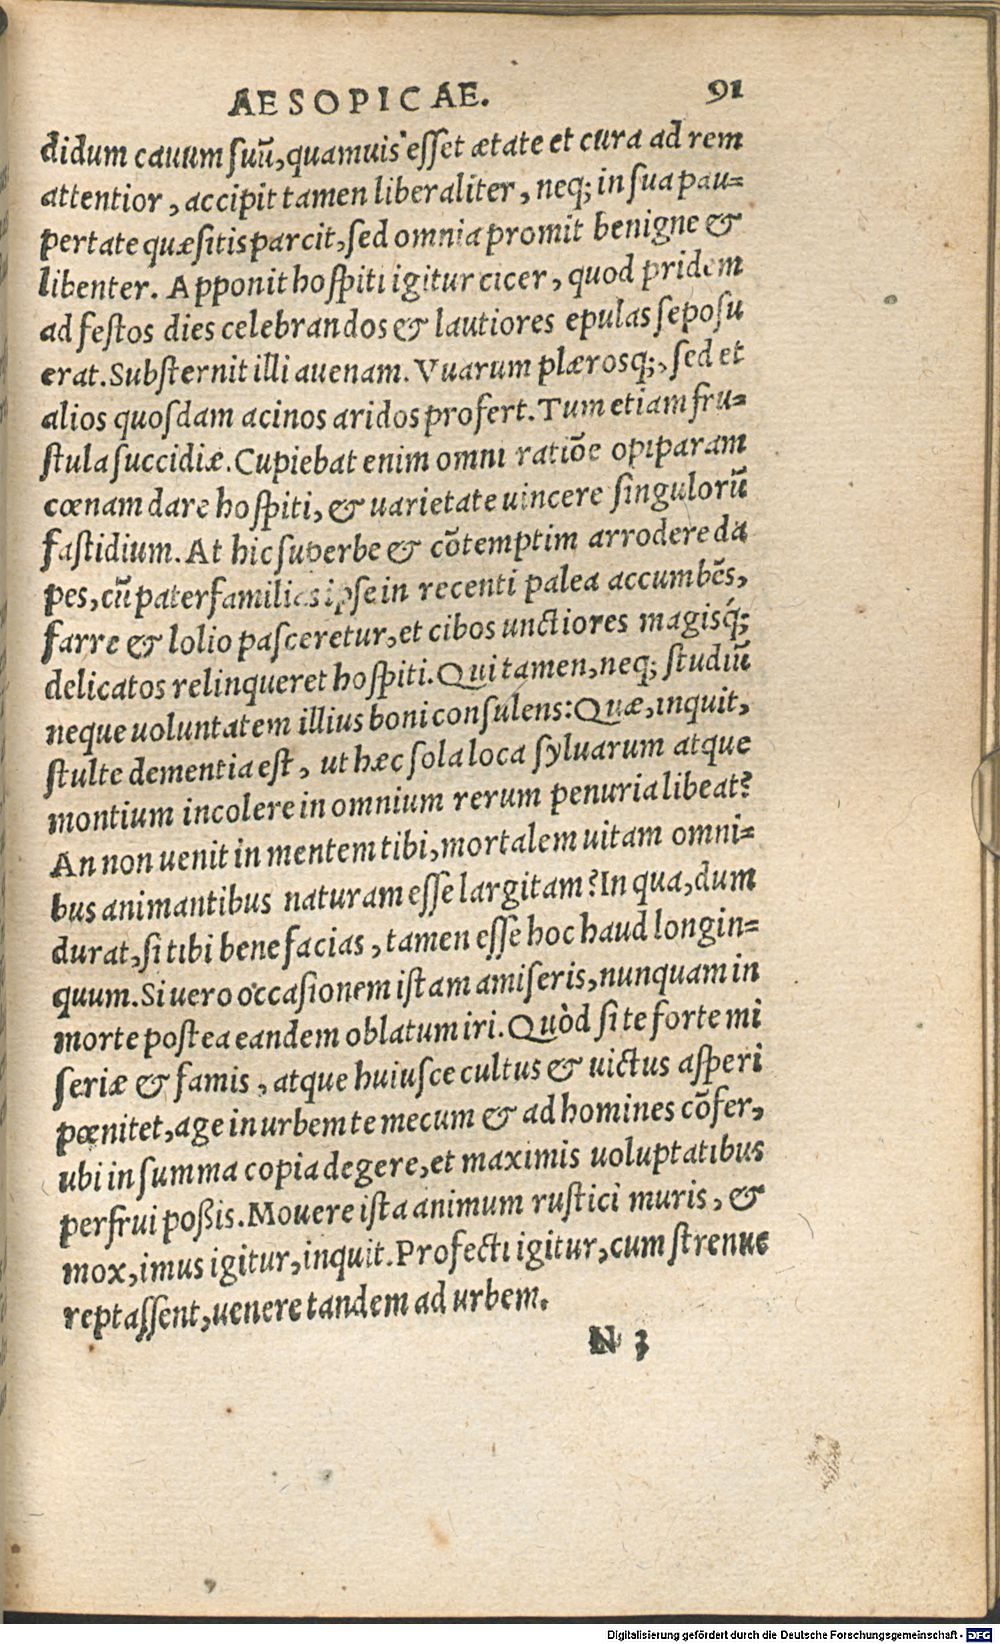 AESOPICAE. 91
didum cauum suũ, quamuis esset ætate et cura ad rem
attentior, accipit tamen liberaliter, neq; in sua pau=
pertate quæsitis parcit, sed omnia promit benigne &
libenter. Apponit hospiti igitur cicer, quod pridem
ad festos dies celebrandos & lautiores epulas seposu
erat. Substernit illi auenam. Vuarum plærosq;, sed et
alios quosdam acinos aridos profert. Tum etiam fru=
stula succidiæ. Cupiebat enim omni ratiõe opiparam
cœnam dare hospiti, & uarietate uincere singulorũ
fastidium. At hic superbe & cõtemptim arrodere da
pes, cũ paterfamilias ipse in recenti palea accumbẽs,
farre & lolio pasceretur, et cibos unctiores magisq́;
delicatos relinqueret hospiti. Qui tamen, neq; studiũ
neque uoluntatem illius boni consulens: Quæ, inquit,
stulte dementia est, ut hæc sola loca syluarum atque
montium incolere in omnium rerum penuria libeat?
An non uenit in mentem tibi, mortalem uitam omni=
bus animantibus naturam esse largitam? In qua, dum
durat, si tibi bene facias, tamen esse hoc haud longin=
quum. Si uero occasionem istam amiseris, nunquam in
morte postea eandem oblatum iri. Quòd si te forte mi
seriæ & famis, atque huiusce cultus & uictus asperi
pœnitet, age in urbem te mecum & ad homines cõfer,
ubi in summa copia degere, et maximis uoluptatibus
perfrui poßis. Mouere ista animum rustici muris, &
mox, imus igitur, inquit. Profecti igitur, cum strenue
reptassent, uenere tandem ad urbem.
N 3
Digitalisierung gefördert durch die Deutsche Forschungsgemeinschaft - DFG